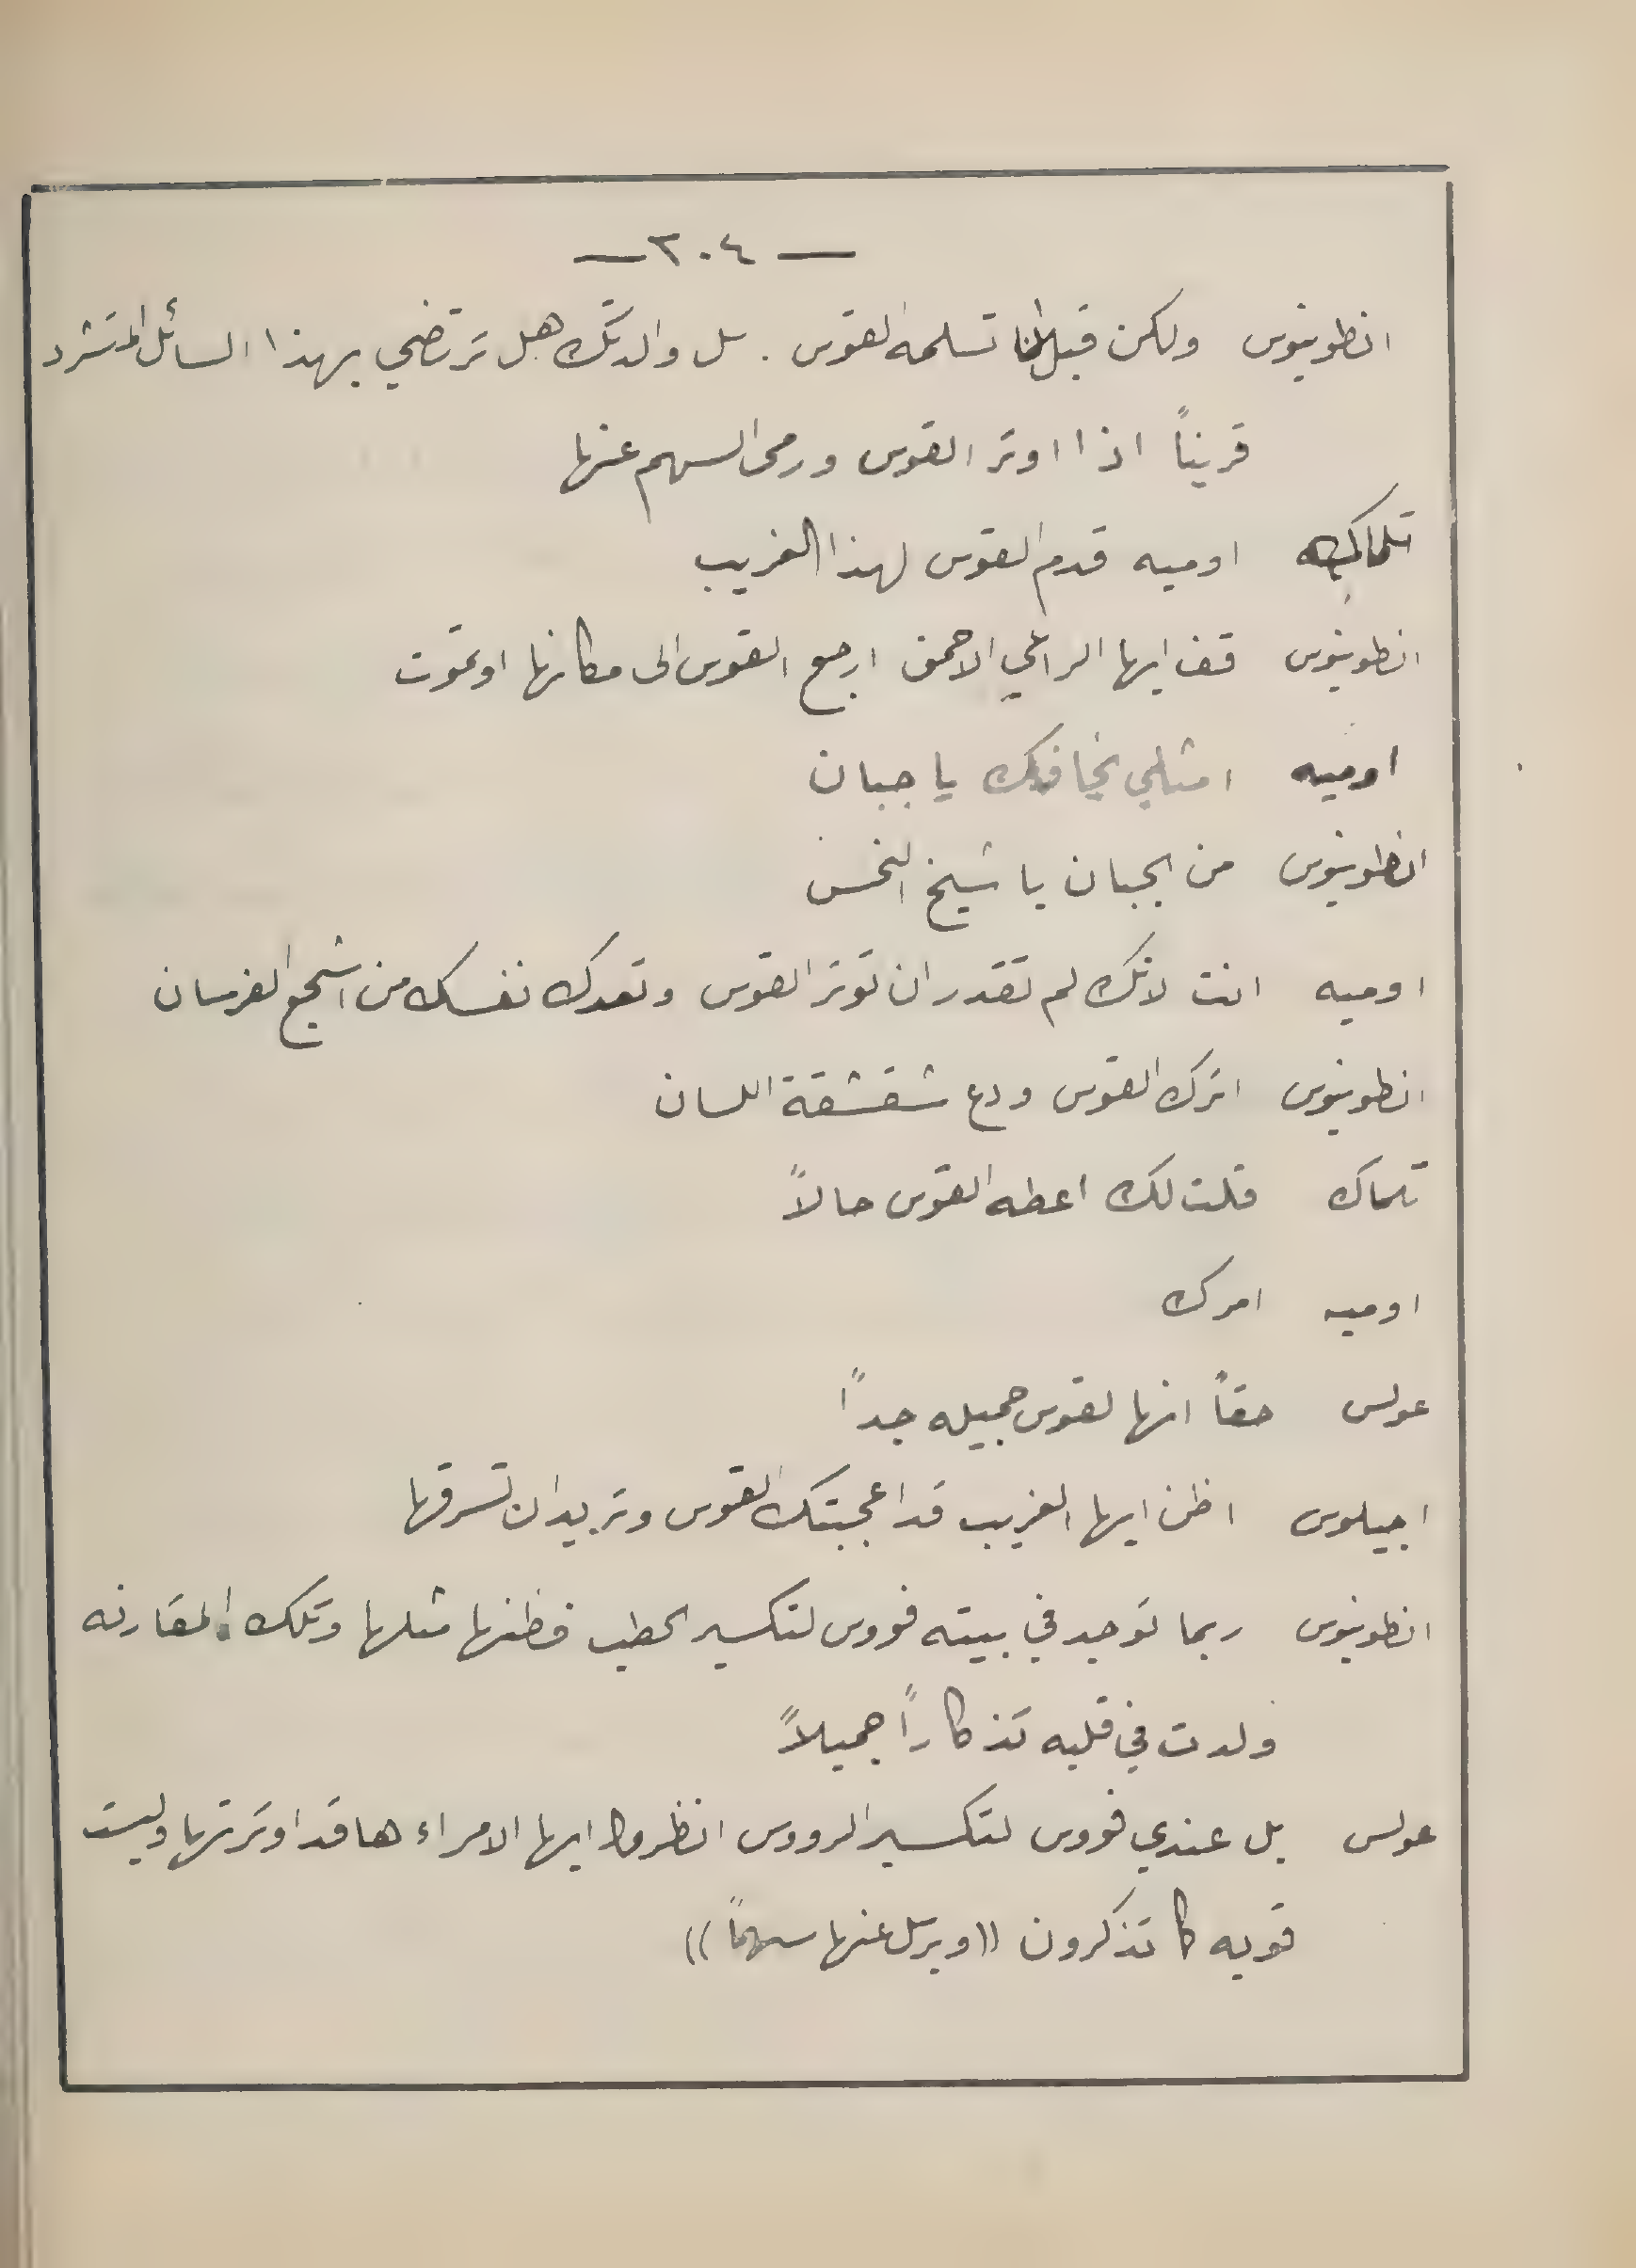 — ٣٠٤ —
انطونيوس ولكن قبل ان تسلمه القوس . سل والدتك هل ترتضي بهذا السائل المتشرد
قريناً اذا اوتر القوس ورمى السهم عنها
تلماك اوميه قدم القوس لهذا الغريب
انطونيوس قف ايها الراعي الاحمق ارجع القوس الى مكانها او تموت
اوميه امثلي يخافك يا جبان
انطونيوس من الجبان يا شيخ النحس
اوميه انت لانك لم تقدر ان توتر القوس وتعدك نفسك من اشجع الفرسان
انطونيوس اترك القوس ودع شقشقة اللسان
تلماك قلت لك اعطه القوس حالاً
اوميه امرك
عولس حقاً انها لقوس جميله جداً
اجيلوس اظن ايها الغريب قد اعجبتك القوس وتريد ان تسرقها
انطونيوس ربما توجد في بيته فووس لتكسير الحطب فظنها مثلها وتلك المقارنه
ولدت في قلبه تذكاراً جميلاً
عولس بل عندي فووس لتكسير الرووس انظروا ايها الامراء ها قد اوترتها وليست
قويه كما تذكرون ((ويرسل عنها سهماً))